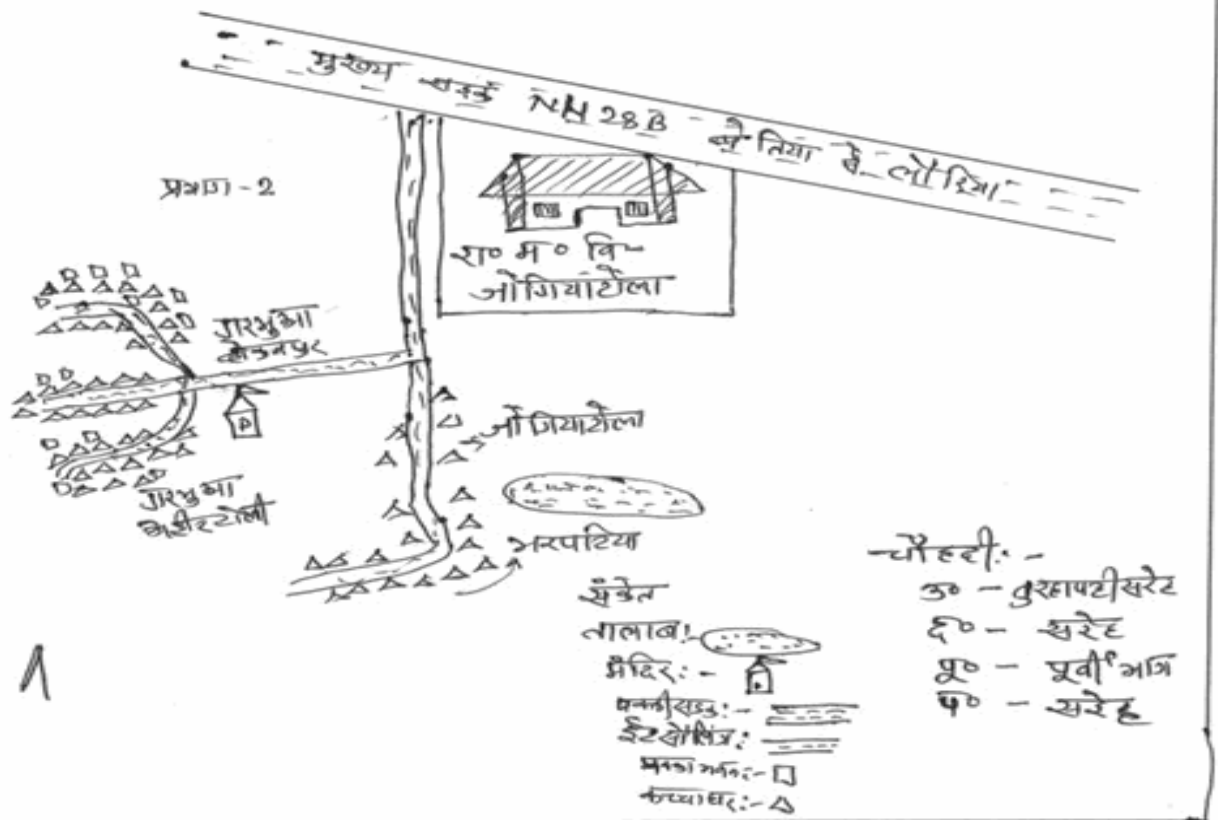 मुख्य सड़क NH 28B बेतिया से लौरिया
प्रभाग-2
रा० म० वि०
जोगियाटोला
गरभुआ
गरभुआ
अहीरटोली
जोगियाटोला
भरपटिया
संकेत
तालाब:
मंदिर:-
पक्की सड़क:-
ईट सोलिंग:
पक्का मकान:-
कच्चा घर:-
चौहद्दी:-
उ० -
द० - सरेह
पू० - पूर्वी भाग
प० - सरेह
1